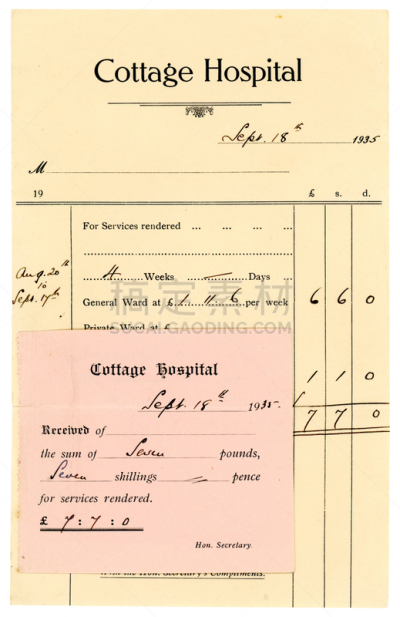 Cottage Hospital
Sept. 18th 1935
M
19 £ s. d.
For Services rendered ... ... ... ...
4 Weeks — Days
Aug. 20th
to
Sept. 17th
General Ward at £1 11 6 per week 6 6 0
Private Ward at £
1 1 0
7 7 0
稿定素材
SUCAI.GAODING.COM
Cottage Hospital
Sept. 18th 1935.
Received of
the sum of Seven pounds,
Seven shillings — pence
for services rendered.
£ 7 : 7 : 0
Hon. Secretary.
With the Hon. Secretary's Compliments.